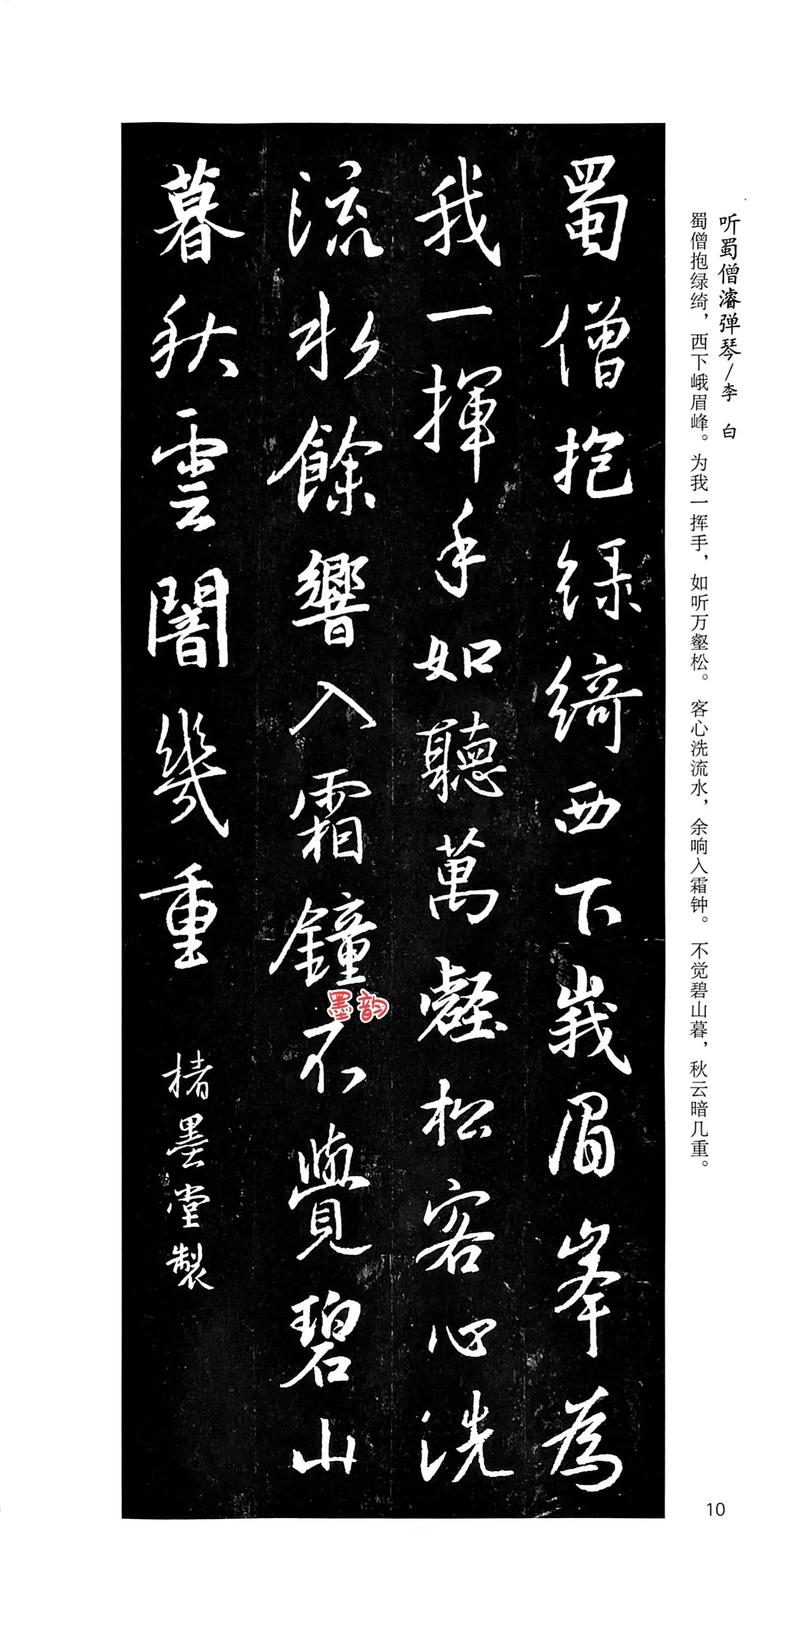 听蜀僧濬弹琴/李白
蜀僧抱绿绮，西下峨眉峰。为我一挥手，如听万壑松。客心洗流水，余响入霜钟。不觉碧山暮，秋云暗几重。
蜀僧抱綠綺西下峩眉峯為
我一揮手如聽萬壑松客心洗
流水餘響入霜鐘不覺碧山
暮秋雲闇幾重
楮墨堂製
墨韵
10